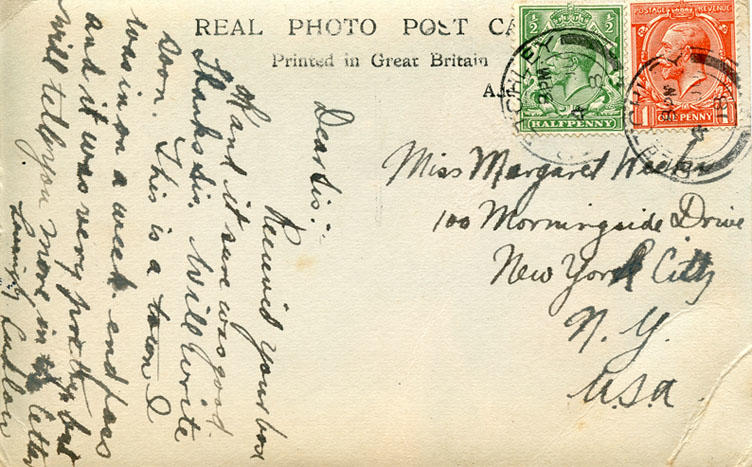 REAL PHOTO POST CA
Printed in Great Britain
A.
POSTAGE REVENUE
½ ½
HALFPENNY
1 ONE PENNY
8 PM
18
Miss Margaret
100 Morningside Drive
New York City
N. Y.
U.S.A.
Dear Sis:
Received your box
and it sure was good
Thanks Sis. Will write
soon. This is a town I
was in on a week-end pass
and it was very pretty but
will tell you more in letter
Lovingly